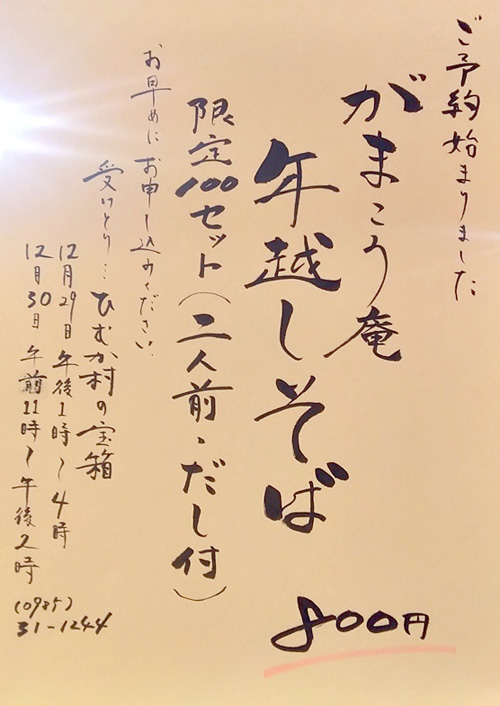 ご予約始まりました
がまこう庵
年越しそば
800円
限定100セット(二人前・だし付)
お早めにお申し込みください。
受けとり…ひむか村の宝箱
12月29日 午後1時〜4時
12月30日 午前11時〜午後2時
(0985)
31-1244